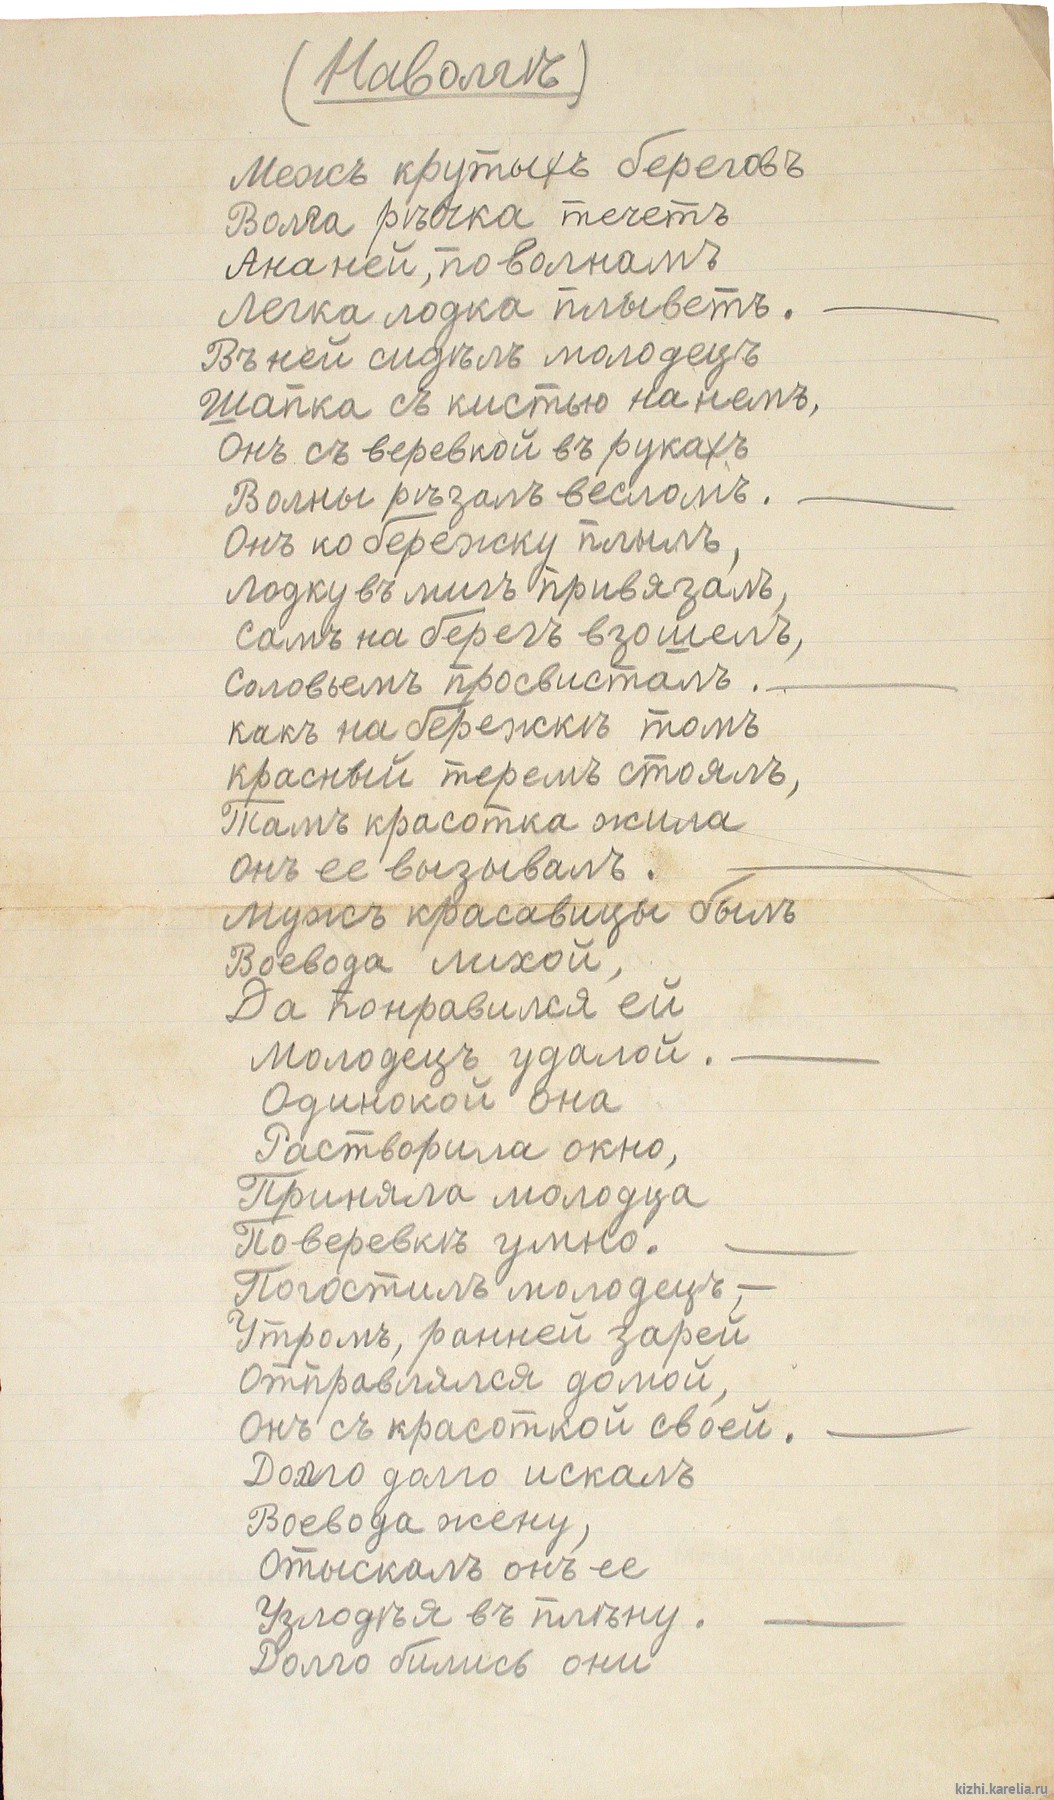 (На Волгѣ)
Межъ крутыхъ береговъ
Волга рѣчка течетъ
А на ней, по волнамъ
Легка лодка плыветъ. —
Въ ней сидѣлъ молодецъ
Шапка съ кистью на немъ,
Онъ съ веревкой въ рукахъ
Волны рѣзалъ весломъ. —
Онъ ко бережку плылъ,
Лодку въ мигъ привязалъ,
Самъ на берегъ взошелъ,
Соловьемъ просвисталъ. —
какъ на бережкѣ томъ
красный теремъ стоялъ,
Тамъ красотка жила
Онъ ее вызывалъ. —
Мужъ красавицы былъ
Воевода лихой,
Да понравился ей
Молодецъ удалой. —
Одинокой она
Растворила окно,
Приняла молодца
По веревкѣ умно. —
Погостилъ молодецъ, —
Утромъ, ранней зарей
Отправлялся домой,
Онъ съ красоткой своей. —
Долго долго искалъ
Воевода жену,
Отыскалъ онъ ее
У злодѣя въ плѣну. —
Долго бились они
kizhi.karelia.ru